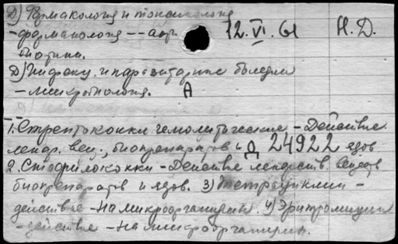 Д) Фармакология и токсикология
- фармакология -- ант.
12.VI.61
Н.Д.
Д) Инфекц. и паразитарные болезни
- микробиология.
А
1. Стрептококки гемолитические - Действие
лекар. вещ., биопрепаратов и ядов
Д 24922
2. Стафилококки - Действие лекарств. веществ
биопрепаратов и ядов. 3) Тетрациклин -
действие - на микроорганизмы. 4) Эритромицин
- действие - на микроорганизмы.